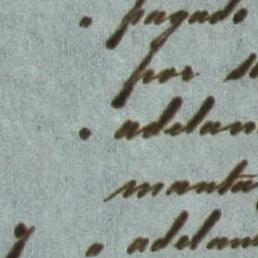 . pagado
por
. adelan
manta
. adelan